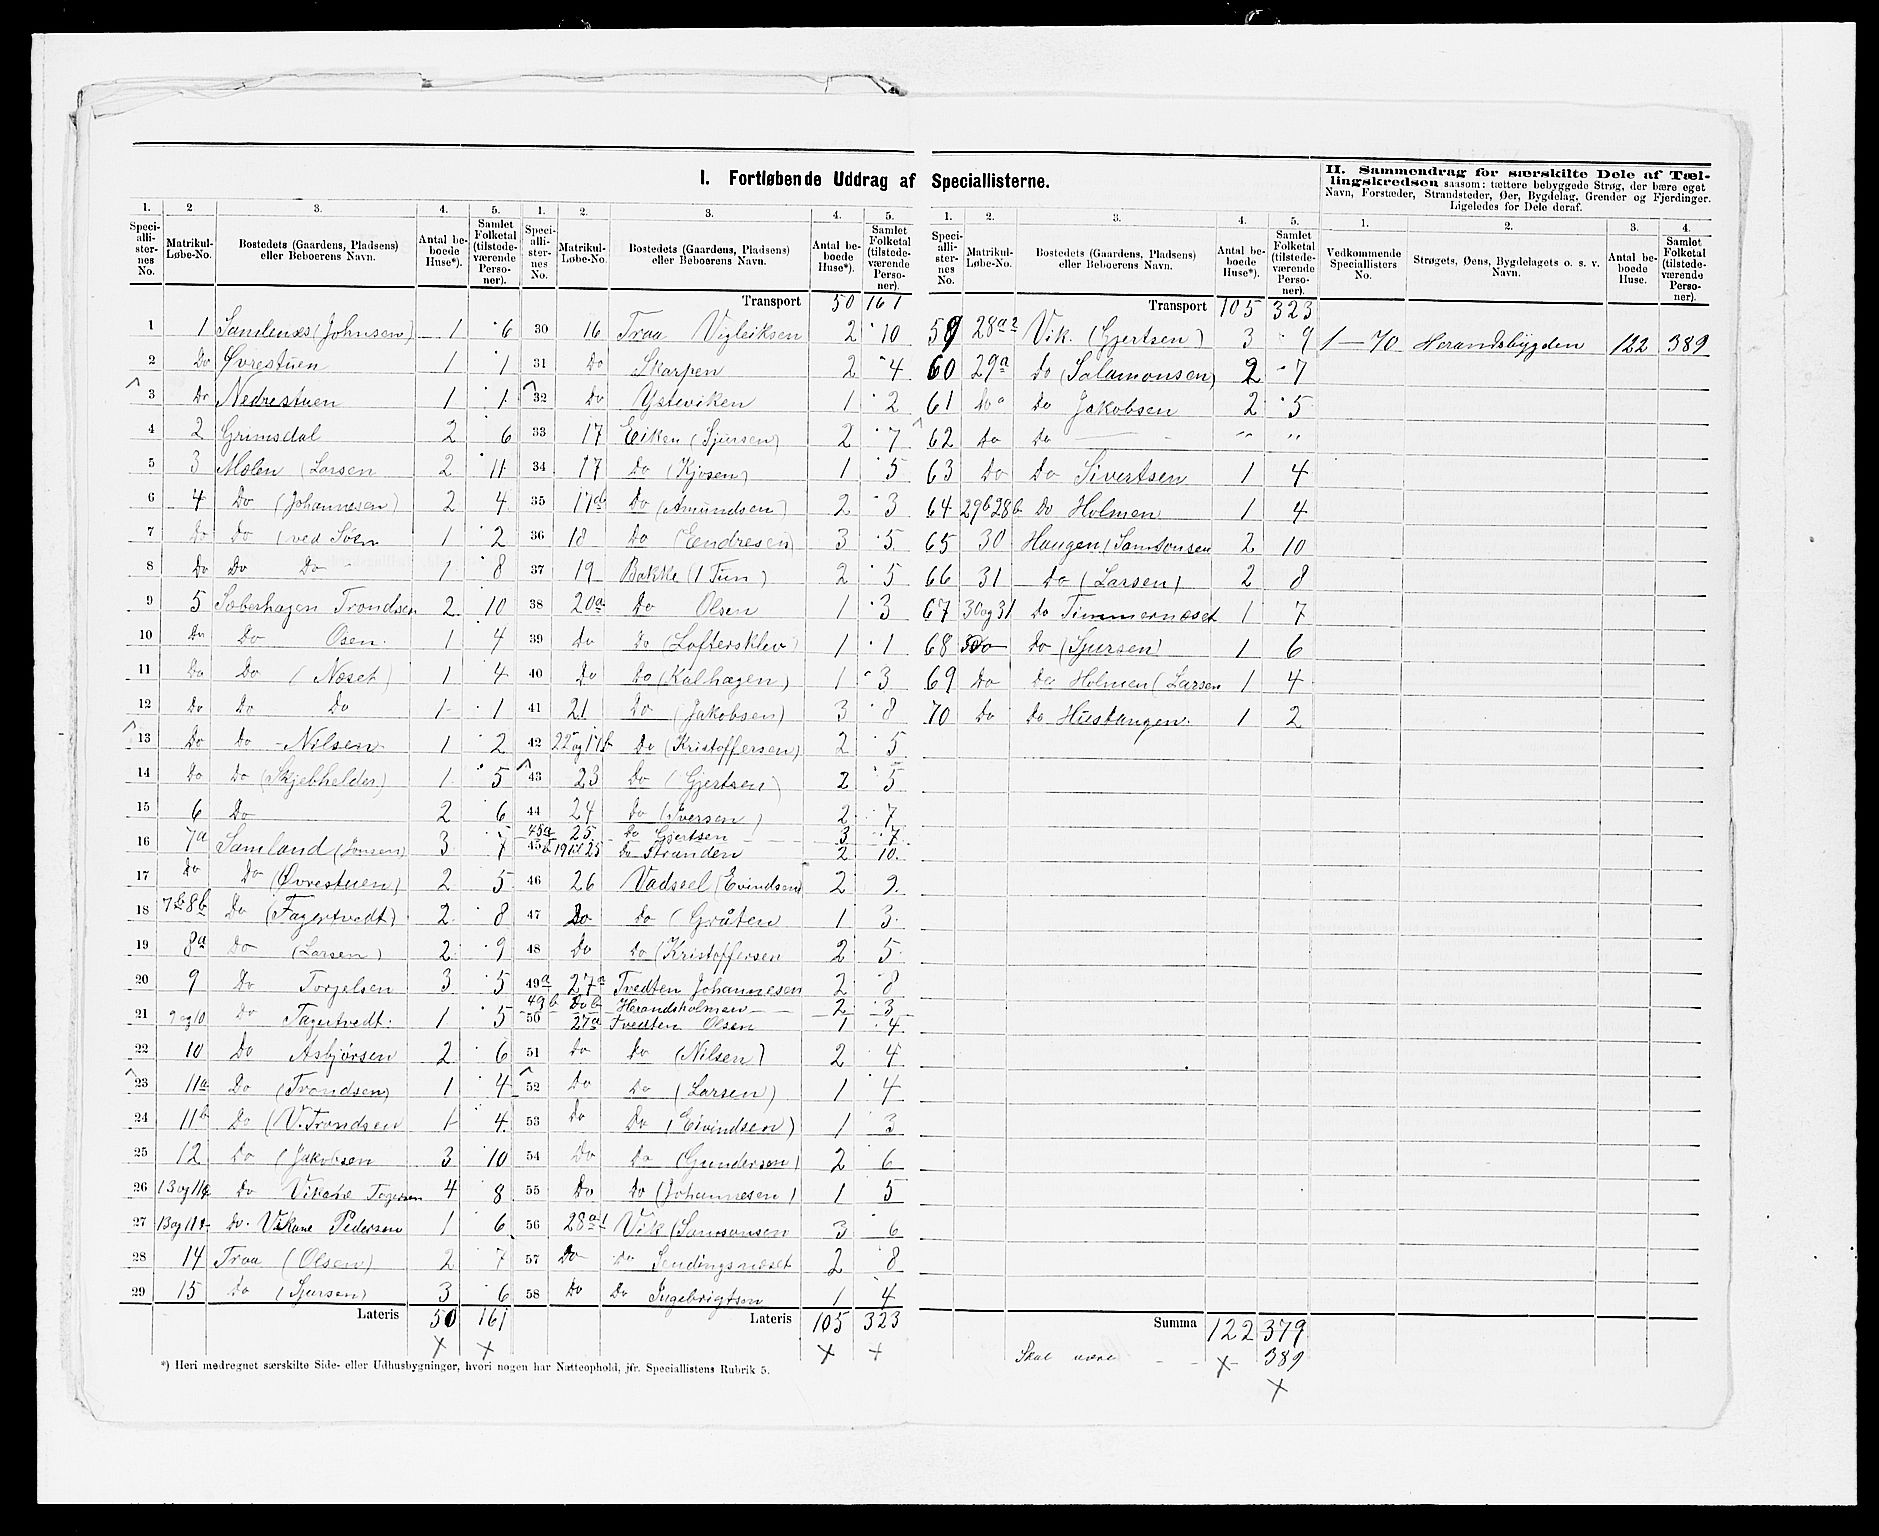 I. Fortløbende Uddrag af Speciallisterne.
II. Sammendrag for særskilte Dele af Tæl-
lingskredsen saasom: tættere bebyggede Strøg, der bære eget
Navn, Forstæder, Strandsteder, Øer, Bygdelag, Grender og Fjerdinger.
Ligeledes for Dele deraf.
1. 2 3. 4. 5.
Speci-alli-ster-nes No. Matrikul-Løbe-No. Bostedets (Gaardens, Pladsens) eller Beboerens Navn. Antal be-boede Huse*). Samlet Folketal (tilstede-værende Perso-ner).
1 1 Samlenæs (Johnsen) 1 6
2 Do Øvrestuen 1 1
3 Do Nedrestuen 1 1
4 2 Grimsdal 2 6
5 3 Molen (Larsen 2 11
6 4 Do (Johannesen) 2 4
7 Do Do (ved Søen 1 2
8 Do Do Do 1 8
9 5 Soberhagen Trondsen 2 10
10 Do Do Osen 1 4
11 Do Do (Næset) 1 4
12 Do Do Do 1 1
13 Do Do Nilsen 1 2
14 Do Do (Skjebhelder) 1 5
15 6 Do 2 6
16 7a Samland (Jonsen) 3 7
17 Do Do (Øvrestuen) 2 5
18 7b8b Do (Fagertvedt) 2 8
19 8a Do (Larsen) 2 9
20 9 Do Torjelsen 3 5
21 9og10 Do Fagertvedt 1 5
22 10 Do Asbjørsen 2 6
23 11a Do (Trondsen) 1 4
24 11b Do (V. Trondsen 1 4
25 12 Do (Jakobsen 3 10
26 13og11a Do Vikane 4 8
27 13og11a Do. Vikane Pedersen 1 6
28 14 Traa (Olsen) 2 7
29 15 Do (Sjursen) 3 6
Lateris 50 161
1. 2. 3. 4. 5.
Speci-alli-ster-nes No. Matrikul-Løbe-No. Bostedets (Gaardens, Pladsens) eller Beboerens Navn. Antal be-boede Huse*). Samlet Folketal (tilstede-værende Perso-ner).
Transport 50 161
30 16 Traa Vigleiksen 2 10
31 Do Skarpen 2 4
32 Do Ysteviken 1 2
33 17 Eiken (Sjursen) 2 7
34 17 Do (Kjosen) 1 5
35 17a Do (Amundsen) 2 3
36 18 Do (Endresen) 3 5
37 19 Bakke (i Tun) 2 5
38 20a Do Olsen 1 3
39 Do Do (Loftersklev) 1 1
40 Do Do (Kalhagen) 1 3
41 21 Do (Jakobsen) 3 8
42 22 og 17b Do (Kristoffersen) 2 5
43 23 Do (Gjertsen) 2 5
44 24 Do (Iversen) 2 7
45a 25 Do Gjertsen 3 7
45b 19til25 Do Stranden 2 10
46 26 Vadssel (Evindsen) 2 9
47 Do Do (Gråten 1 3
48 Do Do (Kristoffersen 2 5
49a 27a Tvedten Johannesen 2 8
49b Do b Herandsholmen 2 3
50 27a Tvedten Olsen 1 4
51 Do Do (Nilsen) 2 4
52 Do Do (Larsen) 1 4
53 Do Do (Eivindsen) 1 3
54 Do Do (Gundersen) 2 6
55 Do Do (Johannesen) 1 5
56 28a1 Vik (Samsonsen 3 6
57 Do Do Sendingsnæset 2 8
58 Do Do Ingebrigtsen 1 4
Lateris 105 323
1. 2. 3. 4. 5.
Speci-alli-ster-nes No. Matrikul-Løbe-No. Bostedets (Gaardens, Pladsens) eller Beboerens Navn. Antal be-boede Huse*). Samlet Folketal (tilstede-værende Perso-ner).
Transport 105 323
59 28a2 Vik. (Gjertsen) 3 9
60 29a Do (Salamonsen) 2 7
61 Do a Do Jakobsen 2 5
62 Do Do — " "
63 Do Do Sivertsen 1 4
64 29b28b Do Holmen 1 4
65 30 Haugen (Samsonsen 2 10
66 31 Do (Larsen) 2 8
67 30og31 Do Timmernæset 1 7
68 Do Do (Sjursen) 1 6
69 Do Do Holmen (Larsen 1 4
70 Do Do Hustangen. 1 2
Summa 122 379
Skal være 389
1. 2. 3. 4.
Vedkommende Speciallisters No. Strøgets, Øens, Bygdelagets o. s. v. Navn. Antal be-boede Huse. Samlet Folketal (tilstede-værende Perso-ner).
1—70 Herandsbygden 122 389
*) Heri medregnet særskilte Side- eller Udhusbygninger, hvori nogen har Natteophold, jfr. Speciallistens Rubrik 5.